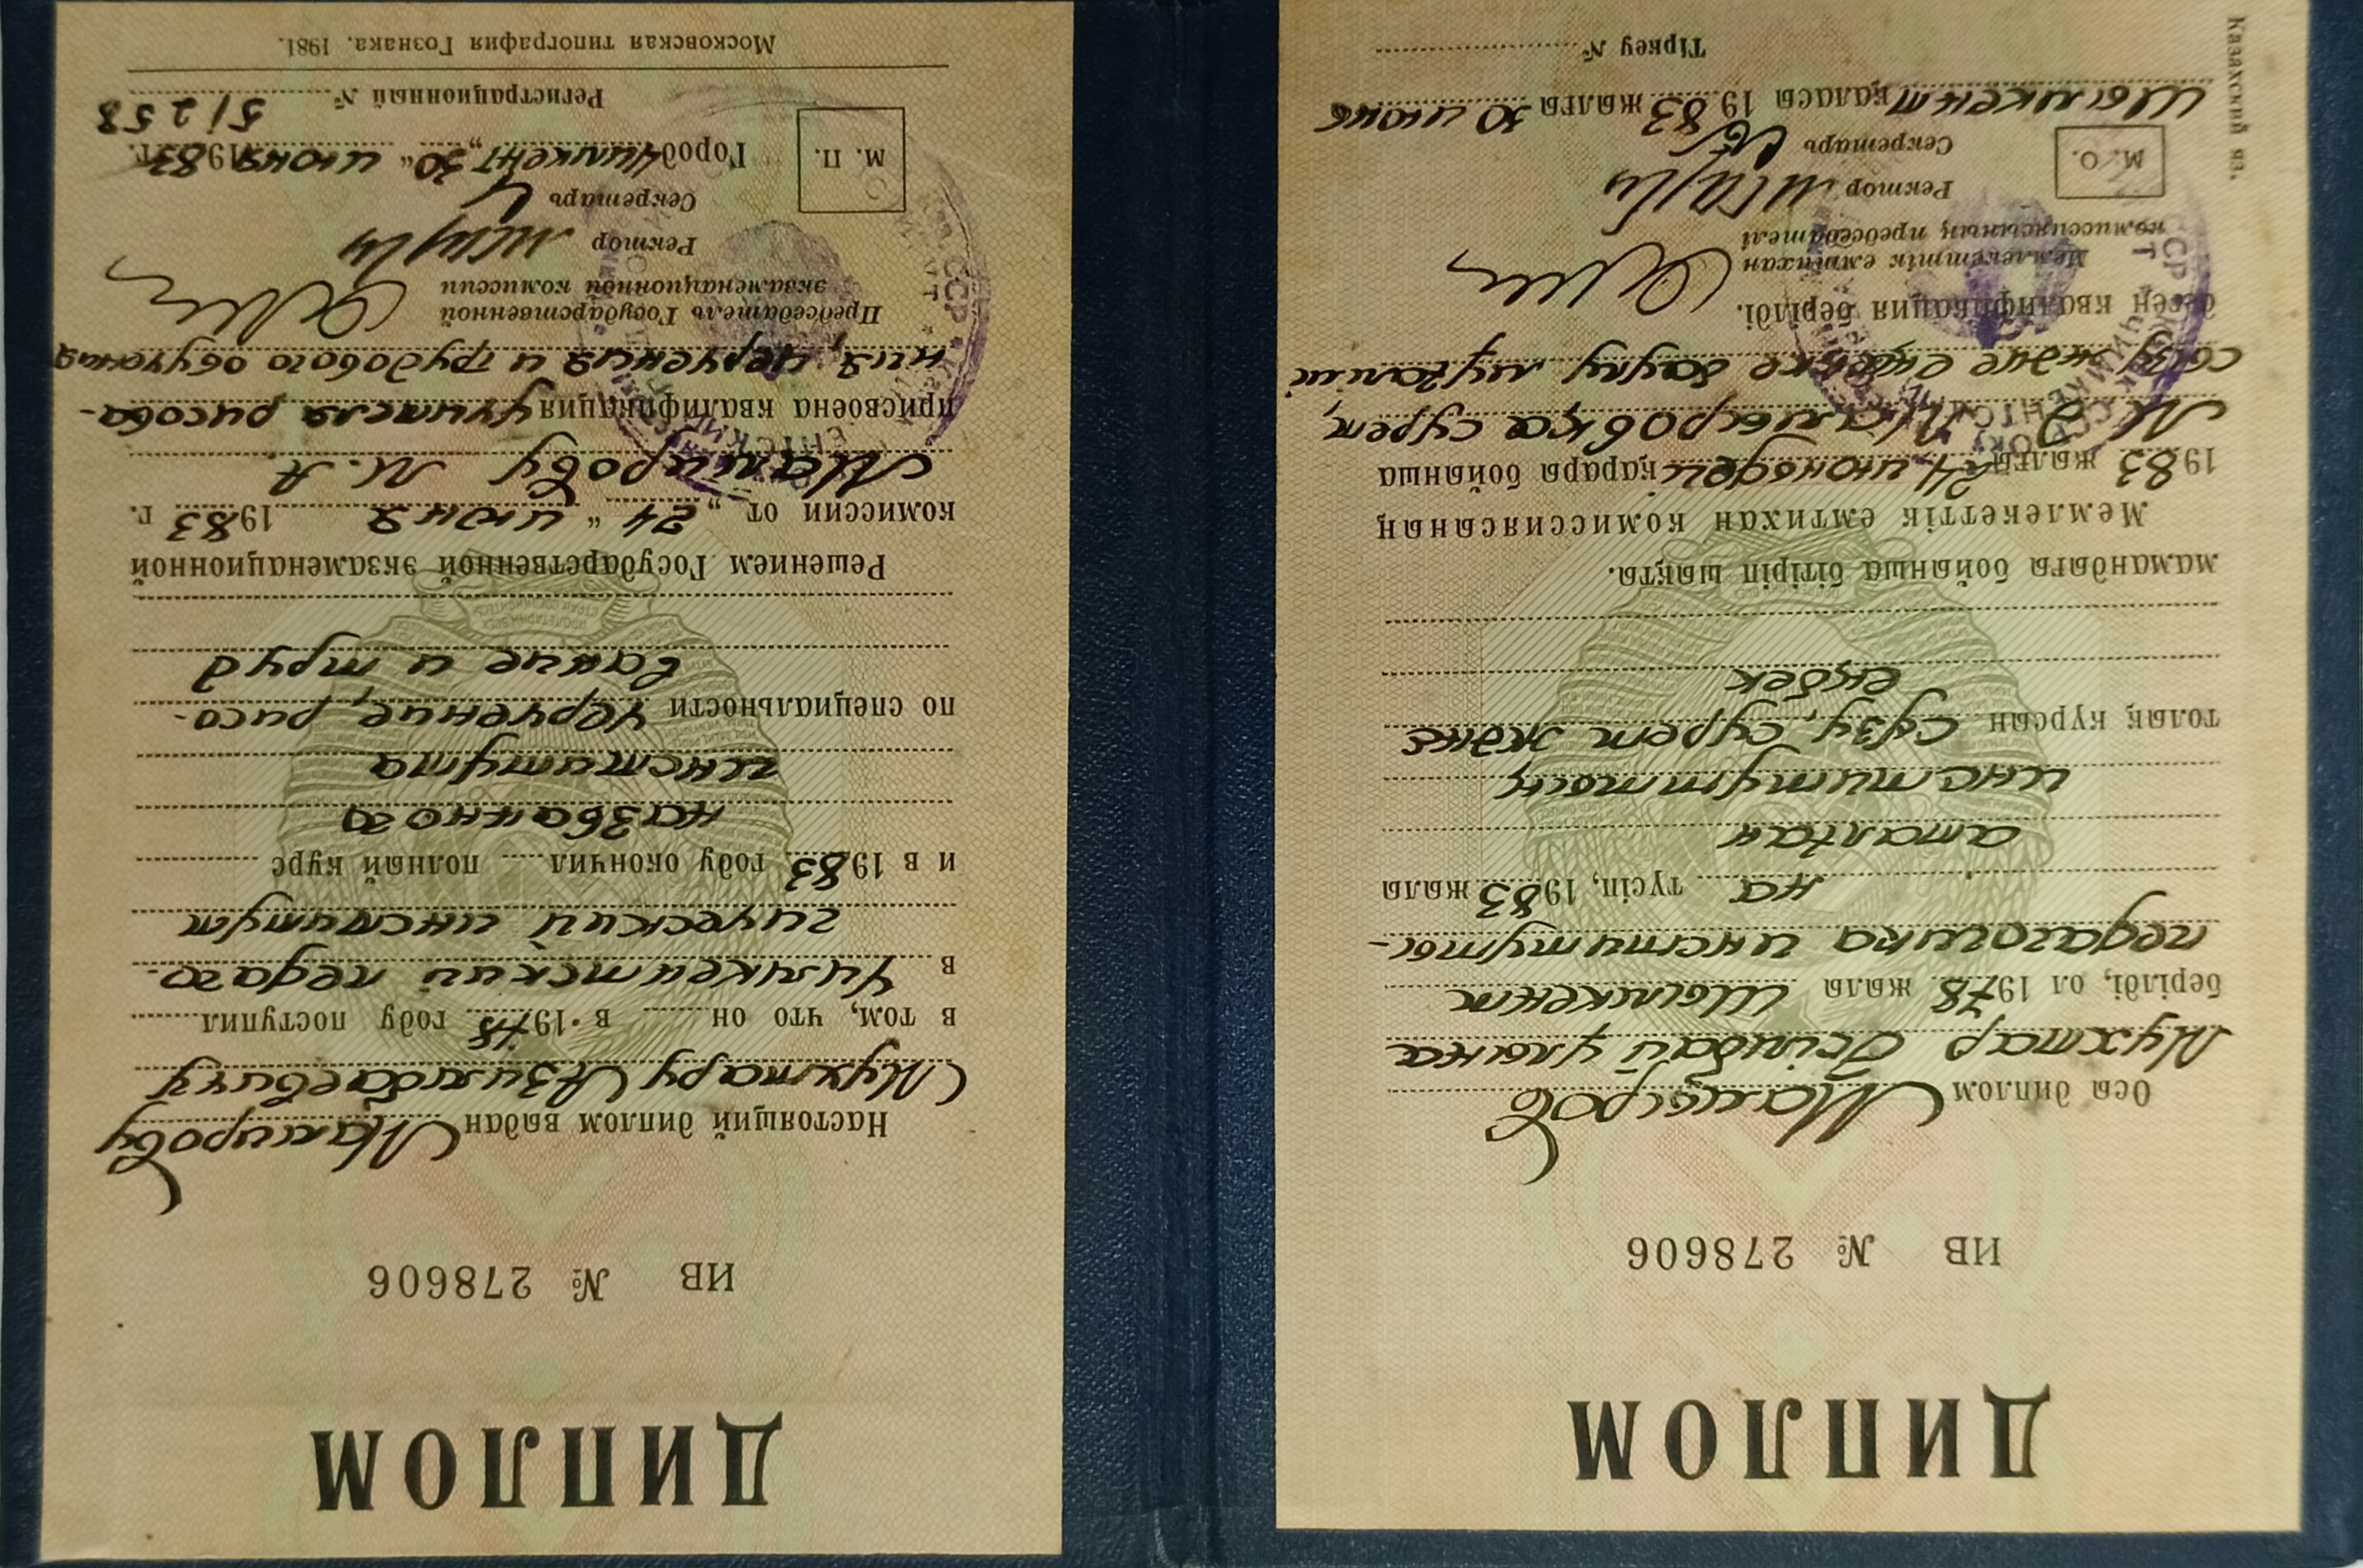 ДИПЛОМ
ИВ № 278606
Осы диплом Мамыров
Мухтар Әзімбай ұлына
берілді, ол 1978 жылы Шымкент
педагогика институты-
на түсіп, 1983 жылы
аталған
институттың
толық курсын сызу, сурет және
еңбек
мамандығы бойынша бітіріп шықты.
Мемлекеттік емтихан комиссиясының
1983 жылғы 24 июньдегі қарары бойынша
М Ә Мамыровқа сурет,
сызу және еңбекке баулу мұғалімі
деген квалификация берілді.
Мемлекеттік емтихан
комиссиясының председателі
Ректор
Секретарь
М. О.
Шымкент қаласы 1983 жылғы 30 июнь
Тіркеу №
Казахский яз.
ДИПЛОМ
ИВ № 278606
Настоящий диплом выдан Мамирову
Мухтару Азимбаевичу
в том, что он в 1978 году поступил
в Чимкентский педаго-
гический институт
и в 1983 году окончил полный курс
названного
института
по специальности черчение, рисо-
вание и труд
Решением Государственной экзаменационной
комиссии от „24“ июня 1983 г.
Мамирову М. А.
присвоена квалификация учителя рисова-
ния, черчения и трудового обучения
Председатель Государственной
экзаменационной комиссии
Ректор
Секретарь
М. П.
Город Чимкент „30“ июня 1983 г.
Регистрационный № 51258
Московская типография Гознака. 1981.